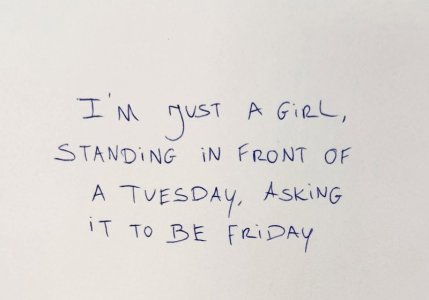 I'M JUST A GiRL,
STANDiNG iN FRONT OF
A TUESDAY, ASKiNG
iT TO BE FRiDAY